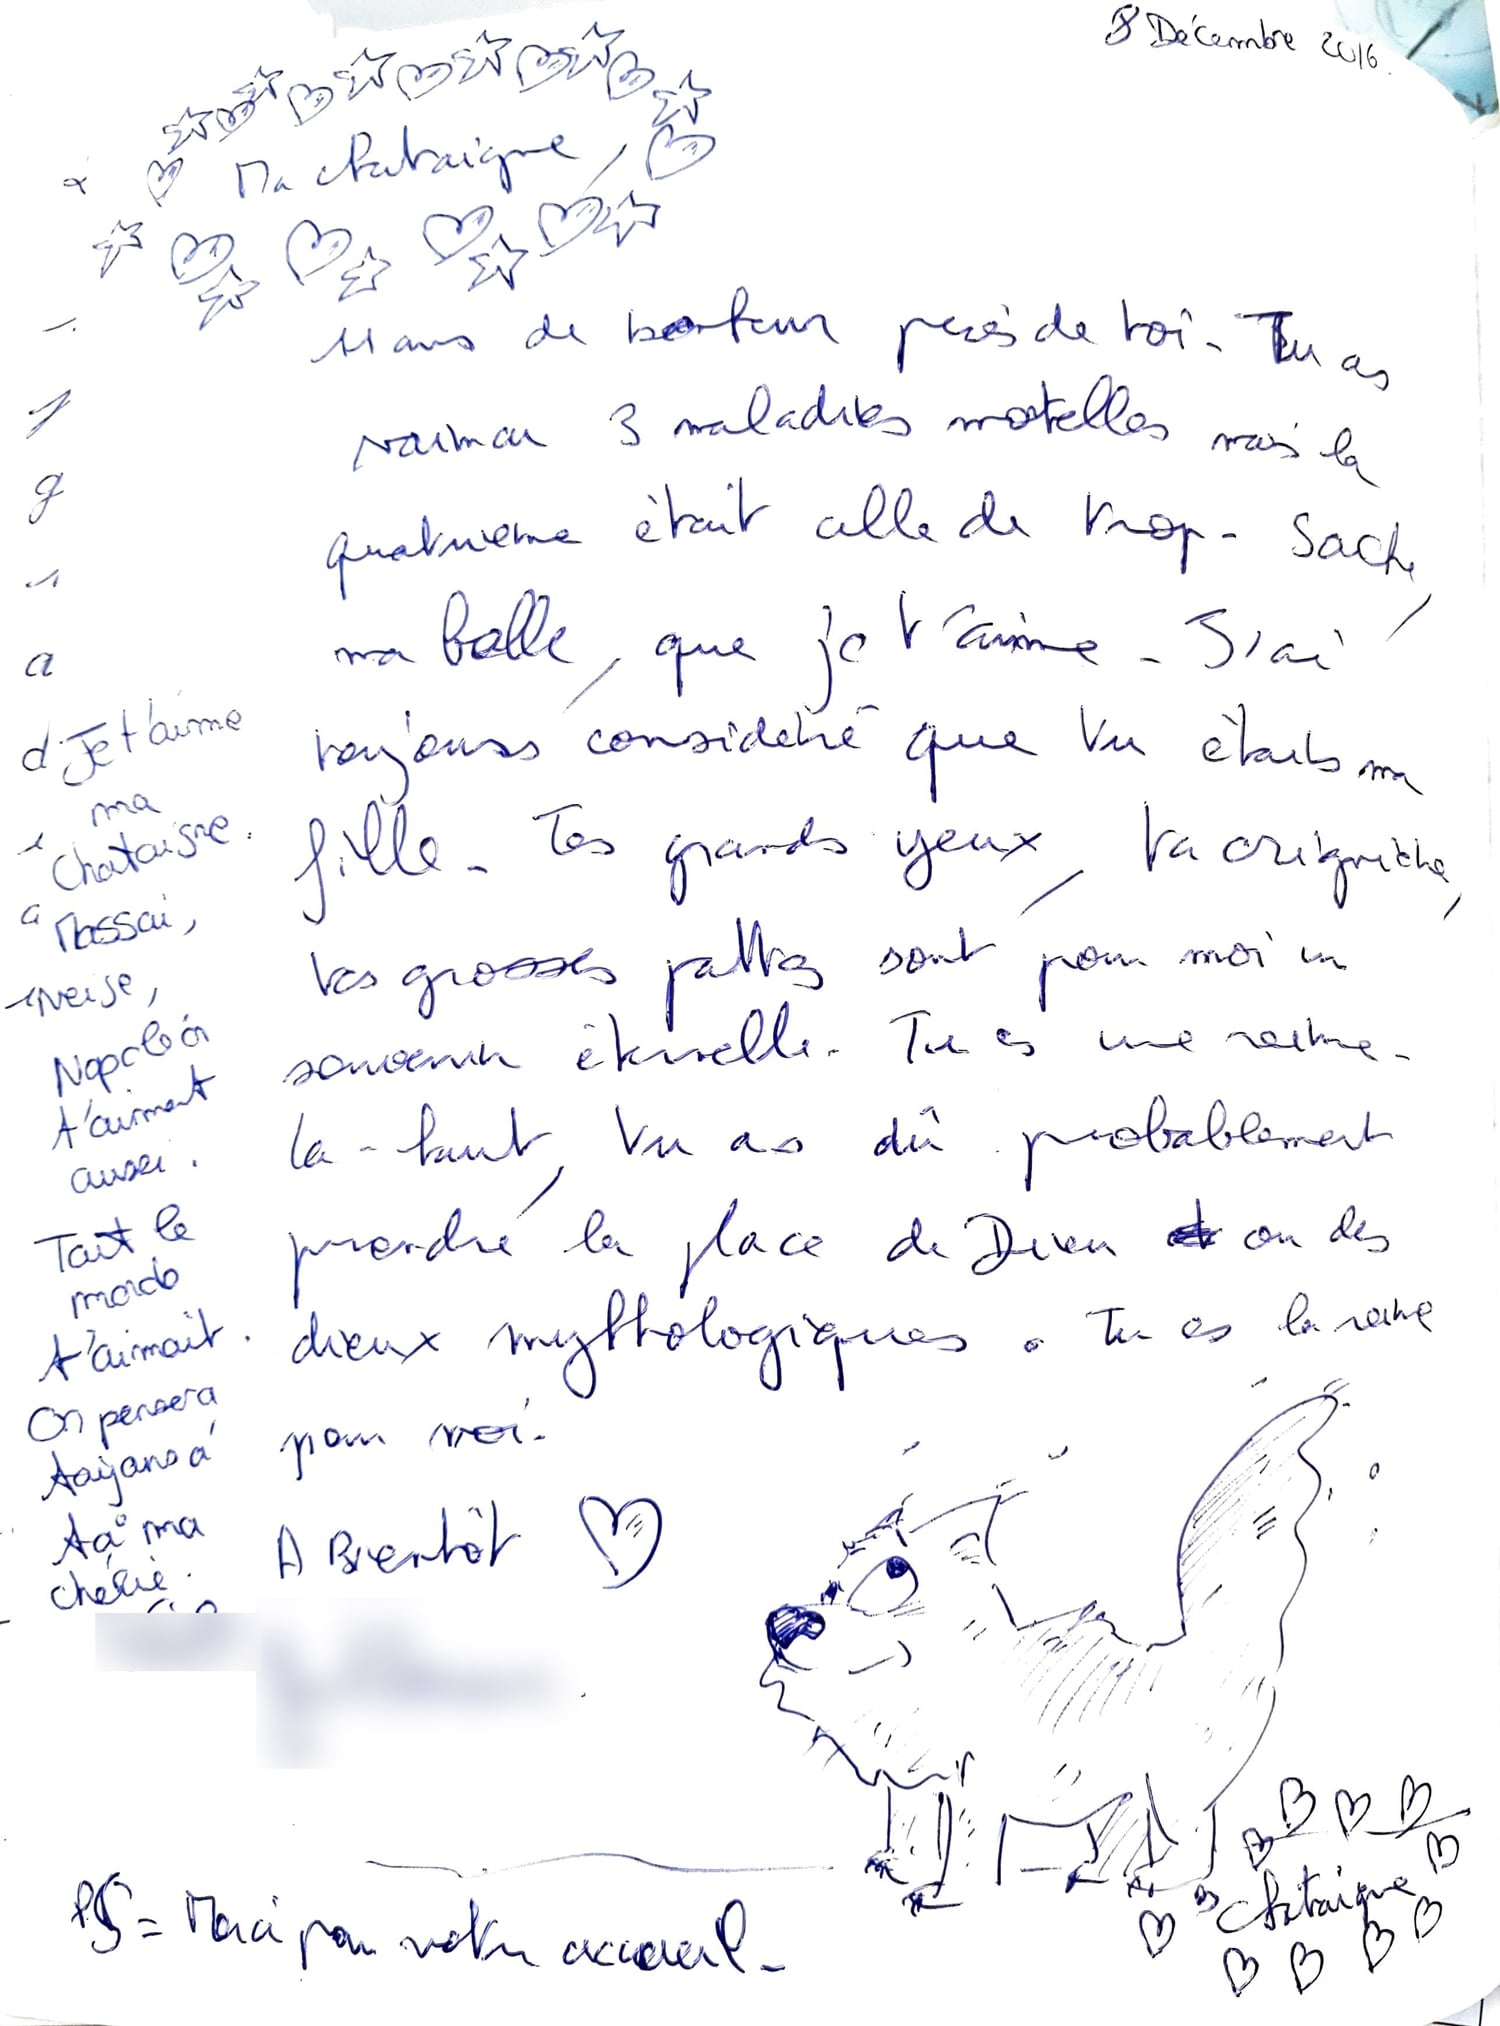 8 Décembre 2016.
Ma chataigne,
11 ans de bonheur près de toi. Tu as
vaincu 3 maladies mortelles mais la
quatrième était celle de trop. Sache,
ma belle, que je t'aime. J'ai
toujours considéré que tu étais ma
fille. Tes grands yeux, ta crignière,
tes grosses pattes sont pour moi un
souvenir éternelle. Tu es une reine.
Là-haut, tu as dû probablement
prendre la place de Dieu ou des
dieux mythologiques. Tu es la reine
pour moi.
A Bientôt
Je t'aime
ma
Chataigne.
Massai,
Neige,
Napoléon
t'aiment
aussi.
Tout le
monde
t'aimait.
On pensera
toujours à
toi ma
chérie.
PS = Merci pour votre accueil.
Chataigne